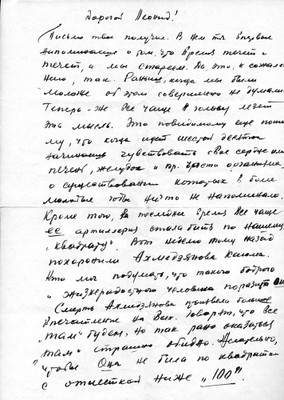 Дорогой Леонид!
Письмо твое получил. В нем ты впервые
напоминаешь о том, что время течет и
течет, а мы стареем. Да, это, к сожале-
нию, так. Раньше, когда мы были
моложе об этом совершенно не думали.
Теперь же все чаще в голову лезет
эта мысль. Это повидимому еще пото-
му, что когда идет шестой десяток
начинаешь чувствовать свое сердце или
печень, желудок и пр. чисто
о существовании которых в более
молодые годы ничто не напоминало.
Кроме того, в последнее время все чаще
ее артиллерия стала бить по нашему
"квадрату". Вот неделю тому назад
похоронили Ахмедзянова
Кто мог подумать, что такого бодрого
и жизнерадостного человека поразит
Смерть Ахмедзянова произвела большое
впечатление на всех. Говорят, что все
"там" будем. Но так рано оказаться
"там" страшно обидно. Желательно,
чтобы Она не била по квадратам
с отметкой ниже "100".